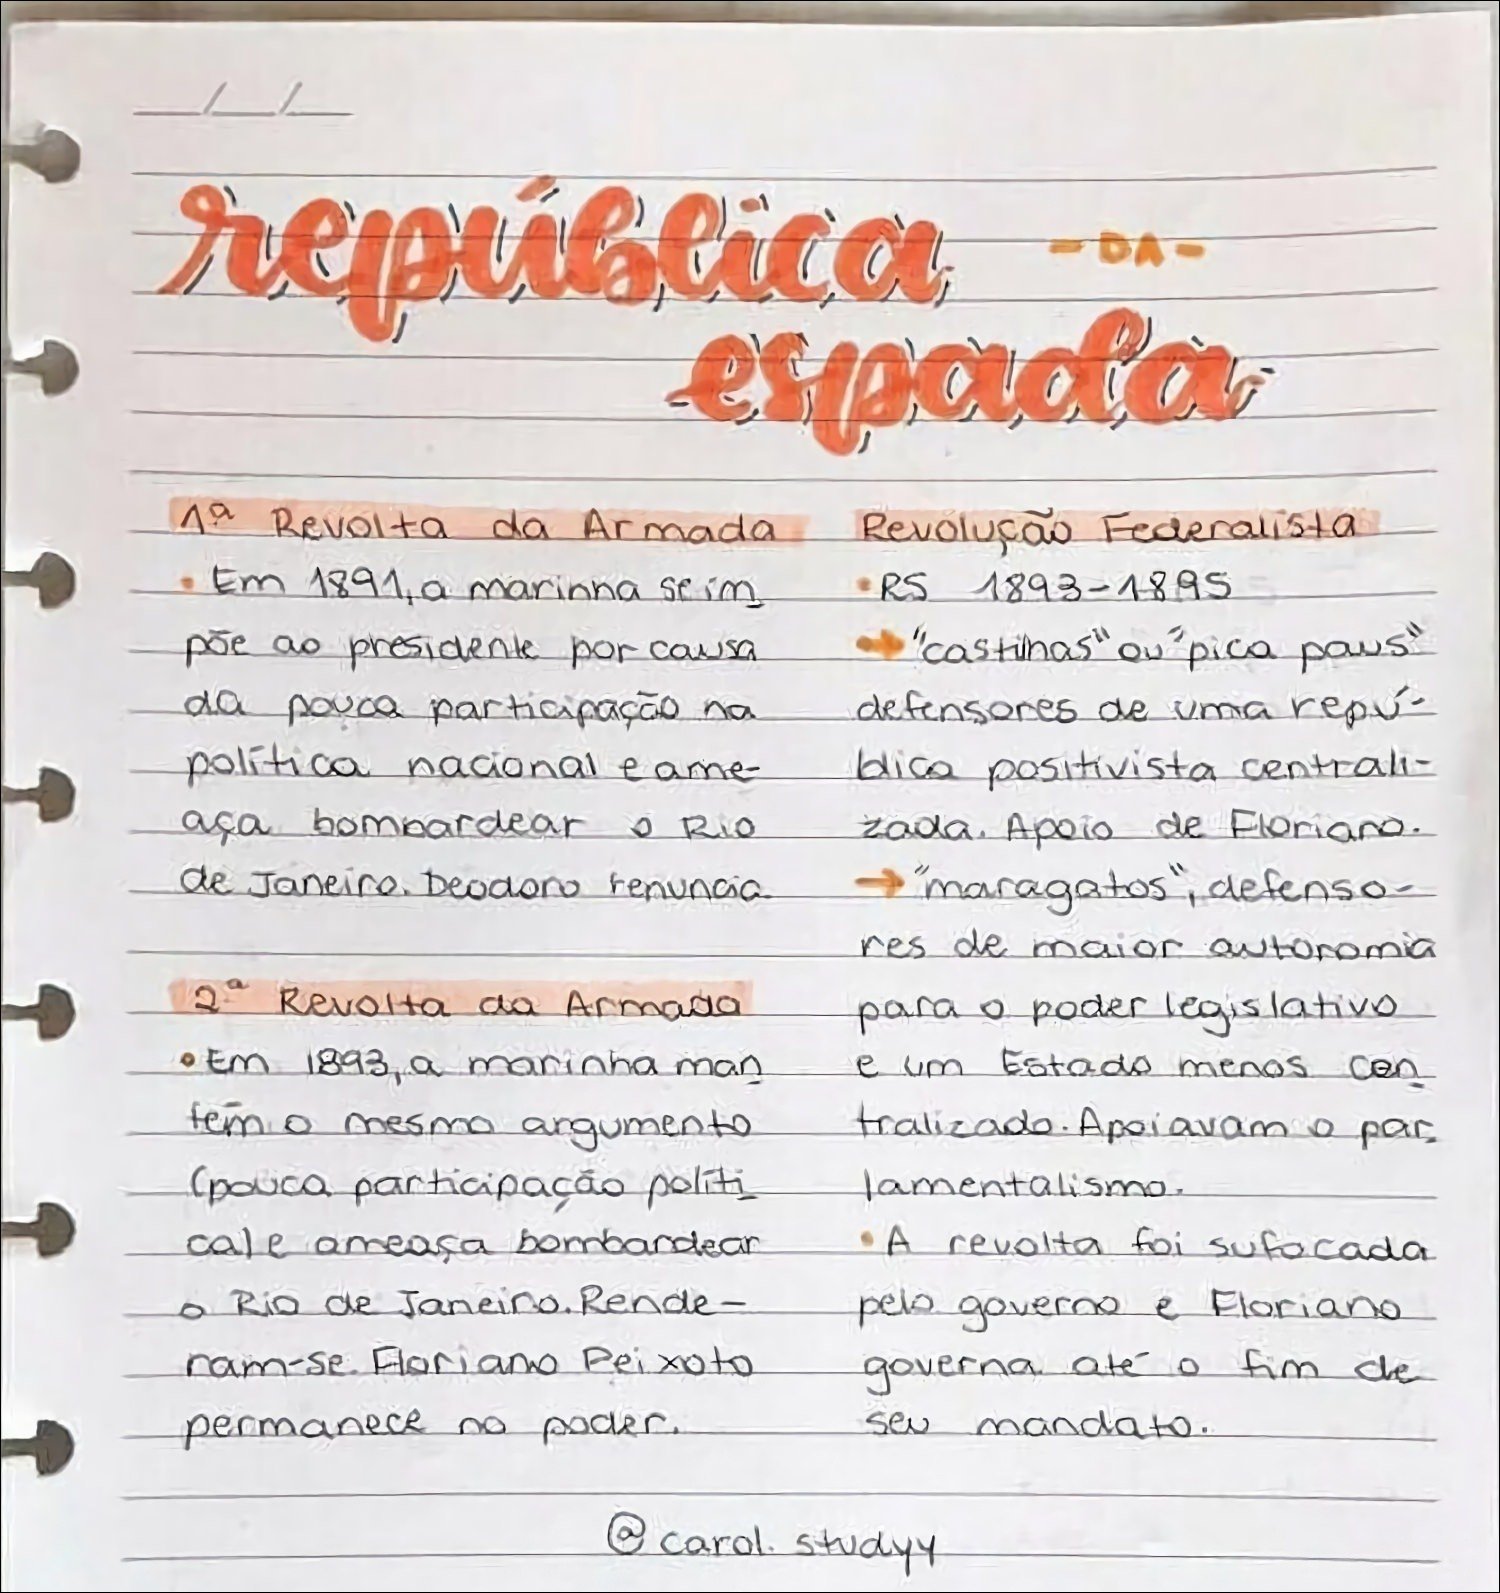 __/__/__
república - DA -
espada
1ª Revolta da Armada
• Em 1891, a marinha se im
põe ao presidente por causa
da pouca participação na
política nacional e ame-
aça bombardear o Rio
de Janeiro. Deodoro renuncia.
2ª Revolta da Armada
• Em 1893, a marinha man
tem o mesmo argumento
(pouca participação políti
ca) e ameaça bombardear
o Rio de Janeiro. Rende-
ram-se. Floriano Peixoto
permanece no poder.
Revolução Federalista
• RS 1893-1895
→ "castilhas" ou "pica paus"
defensores de uma repú-
blica positivista centrali-
zada. Apoio de Floriano.
→ "maragatos", defenso-
res de maior autonomia
para o poder legislativo
e um Estado menos cen
tralizado. Apoiavam o par
lamentalismo.
• A revolta foi sufocada
pelo governo e Floriano
governa até o fim de
seu mandato.
@carol.studyy